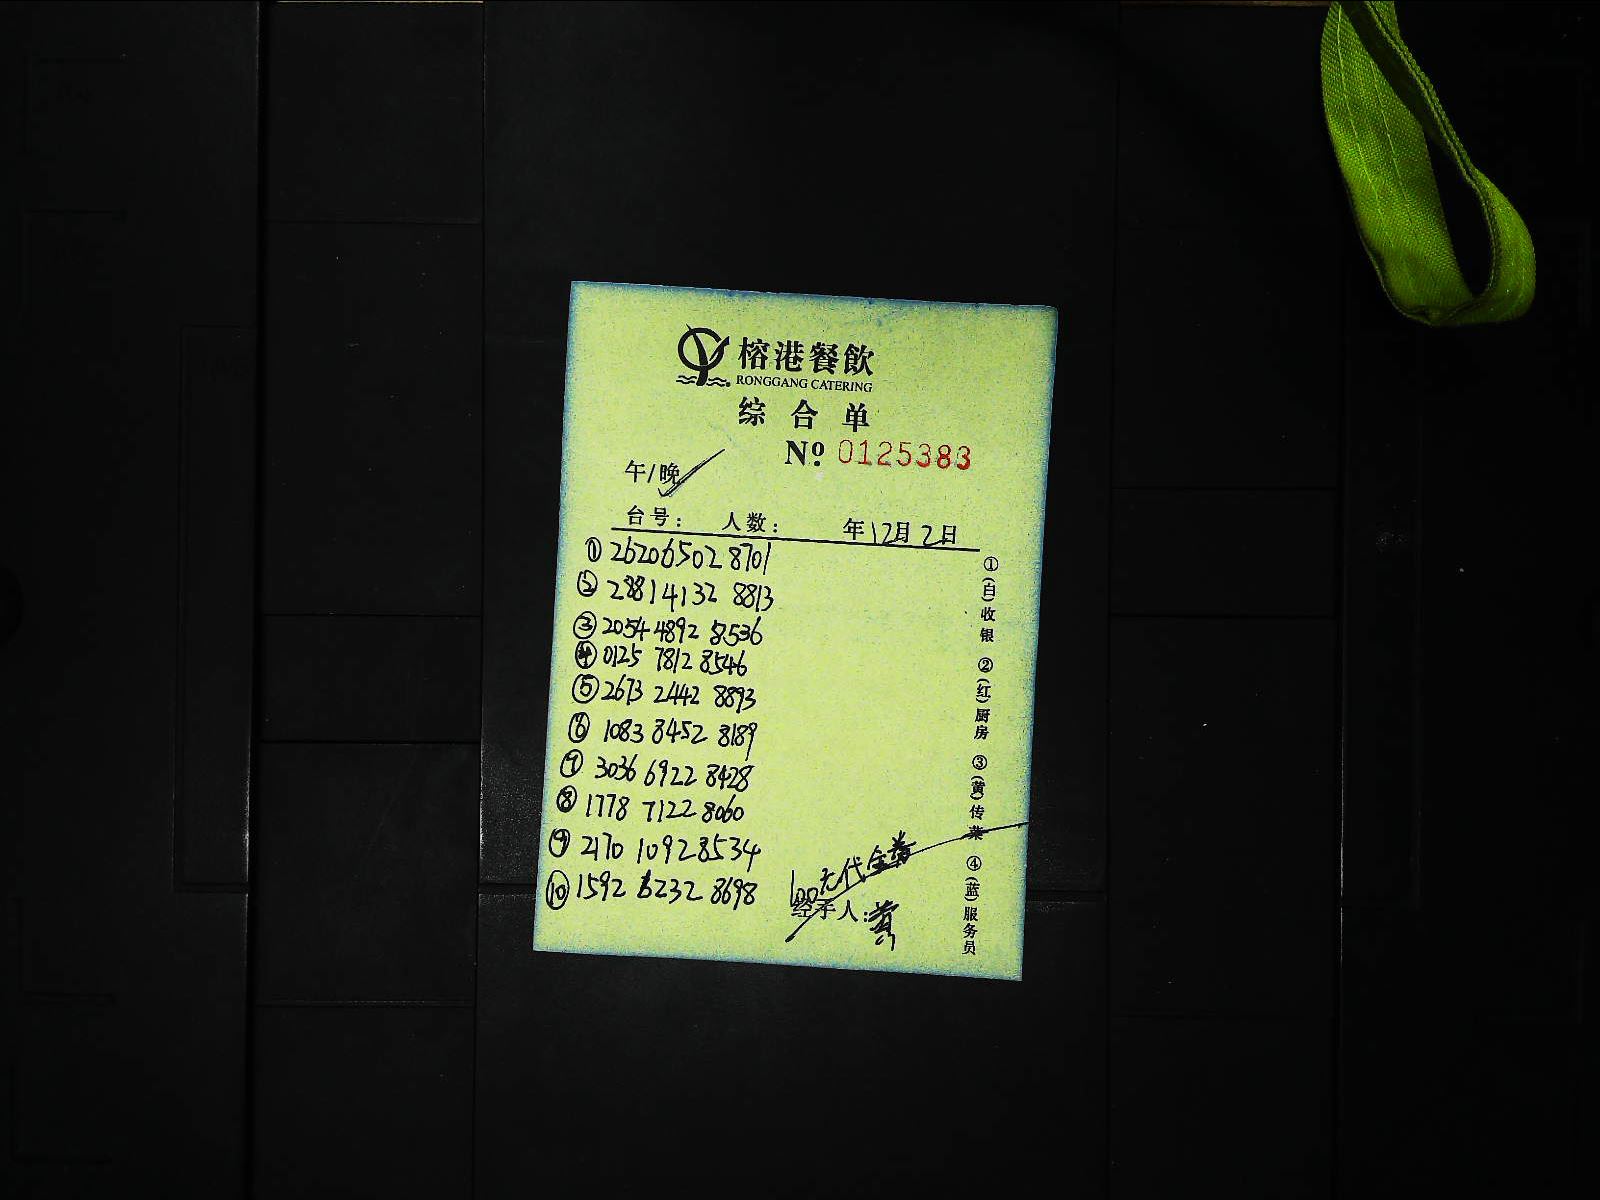 榕港餐飲
RONGGANG CATERING
综合单
Nº 0125383
午/晚
台号: 人数: 年12月2日
① 2620 6502 8701
② 2881 4132 8813
③ 2054 4892 8536
④ 0125 7812 8546
⑤ 2673 2442 8893
⑥ 1083 8452 8189
⑦ 3036 6922 8428
⑧ 1778 7122 8060
⑨ 2170 1092 8534
⑩ 1592 6232 8698
100元代金券
经手人:
①(白)收银 ②(红)厨房 ③(黄)传菜 ④(蓝)服务员